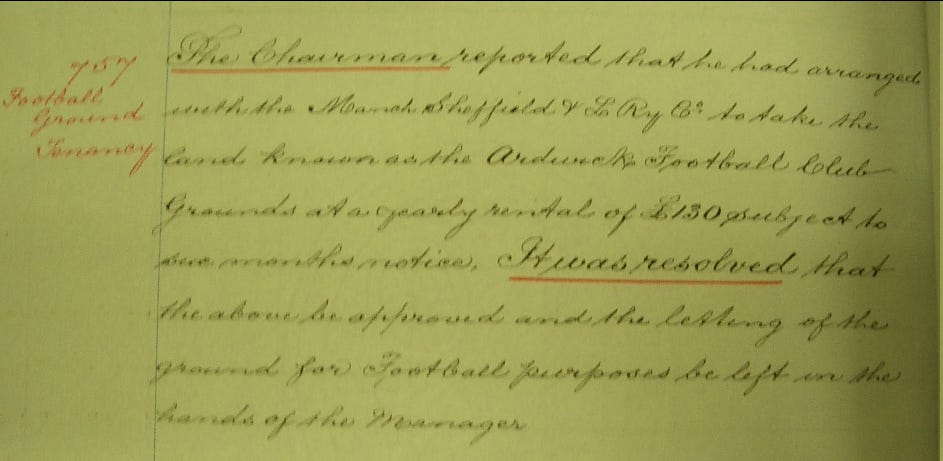 757
Football
Ground
Tenancy
The Chairman reported that he had arranged
with the Manch Sheffield & L Ry Co to take the
land known as the Ardwick Football Club
Grounds at a yearly rental of £130 subject to
six months notice. It was resolved that
the above be approved and the letting of the
ground for Football purposes be left in the
hands of the Manager